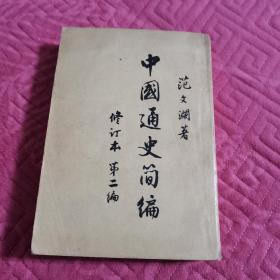 范文澜著
中國通史简编
修订本 第二编